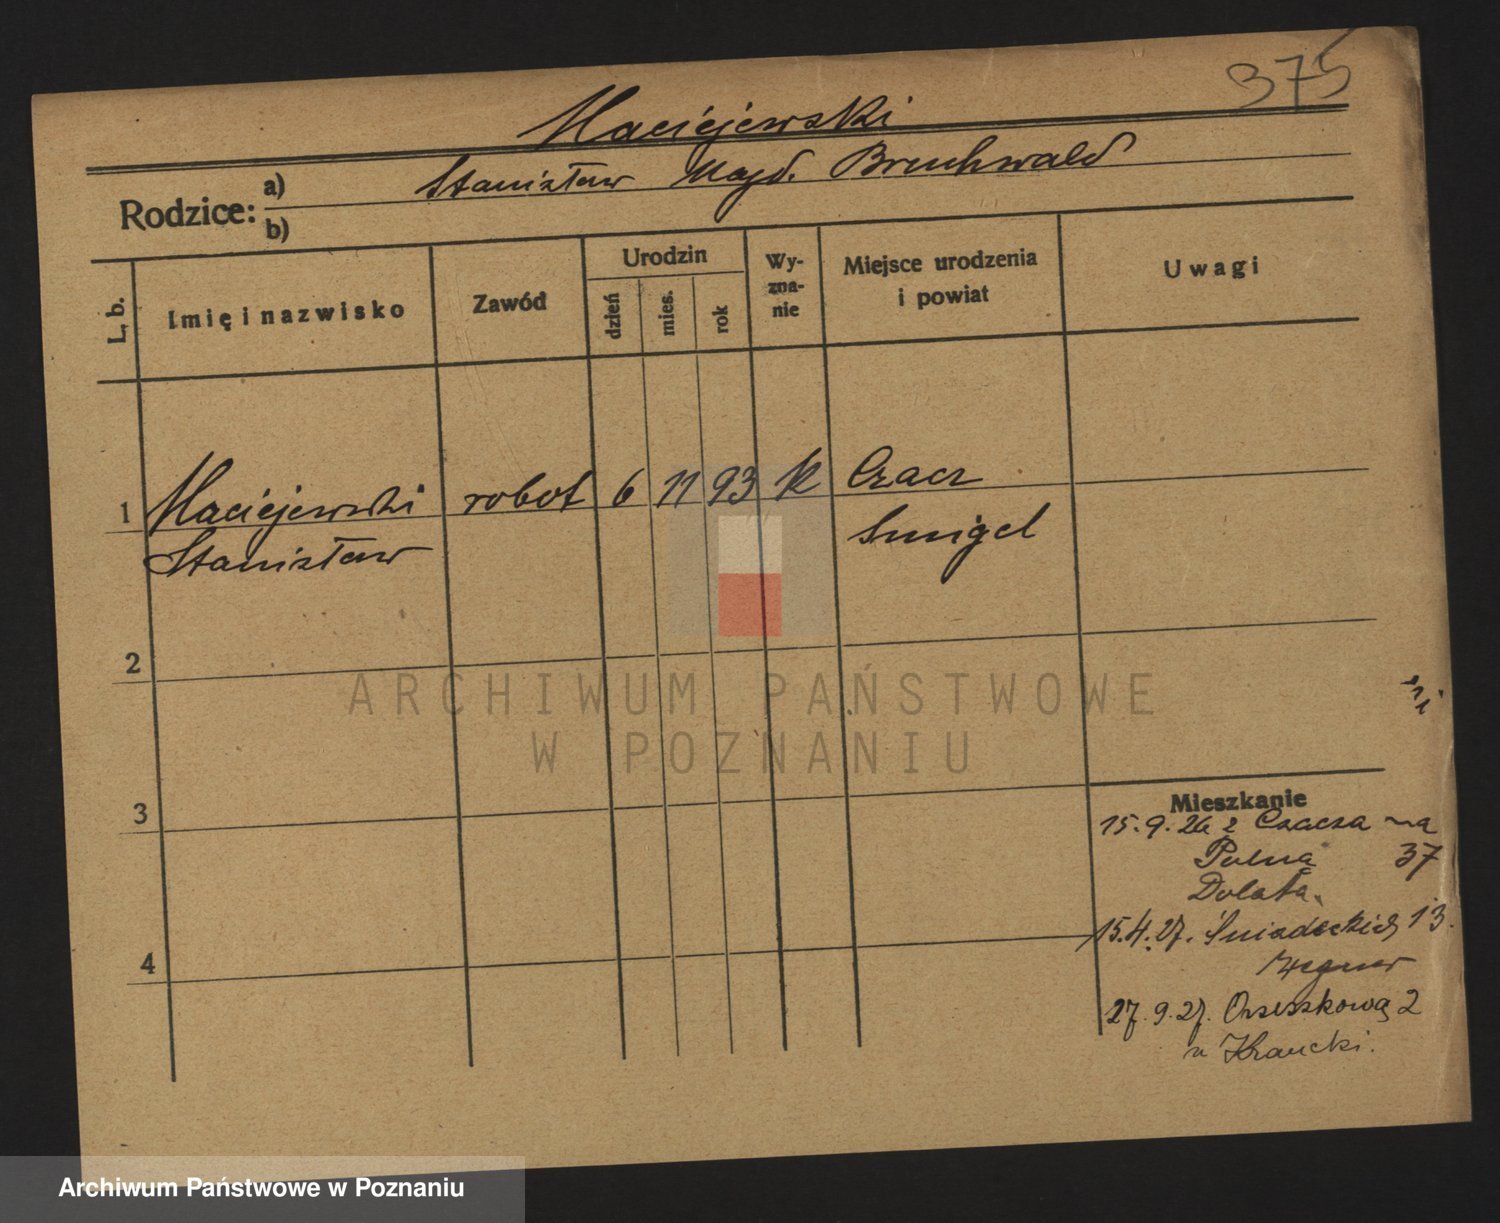 375
Maciejewski
Rodzice: a) Stanisław Magd. Bruchwald
b)
L, b. Imię i nazwisko Zawód Urodzin dzień mies. rok Wy-zna-nie Miejsce urodzenia i powiat Uwagi
1 Maciejewski robot 6 11 93 k Czacz
Stanisław Smigel
2
ARCHIWUM PAŃSTWOWE
W POZNANIU
3
Mieszkanie
15.9.26 z Czacza na
Polną 37
Dolata
4
15.4.27. Śniadeckich 13.
27.9.27. Orzeszkową 2
u
Archiwum Państwowe w Poznaniu